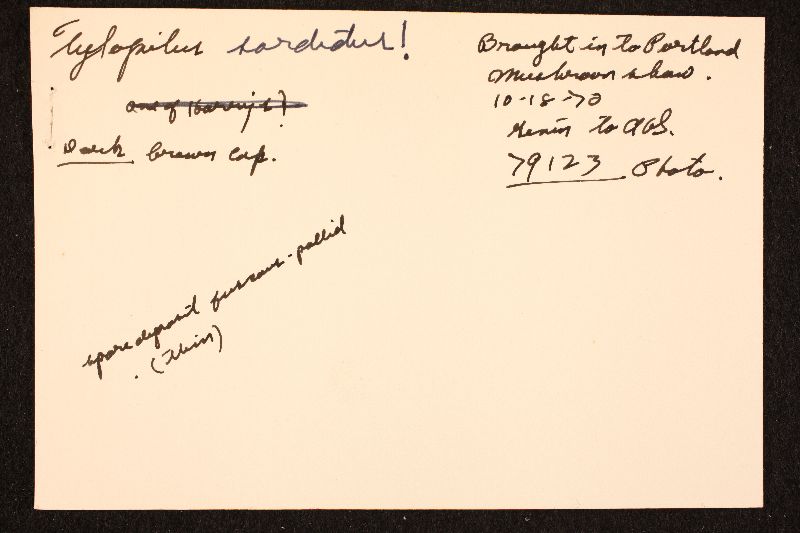 Tylopilus sordidus!
one of Harry's?
Dark brown cap.
Brought in to Portland
Mushroom show.
10-18-70
Given to AHS.
79123 Photo.
spore deposit fuscous-pallid
(thin)